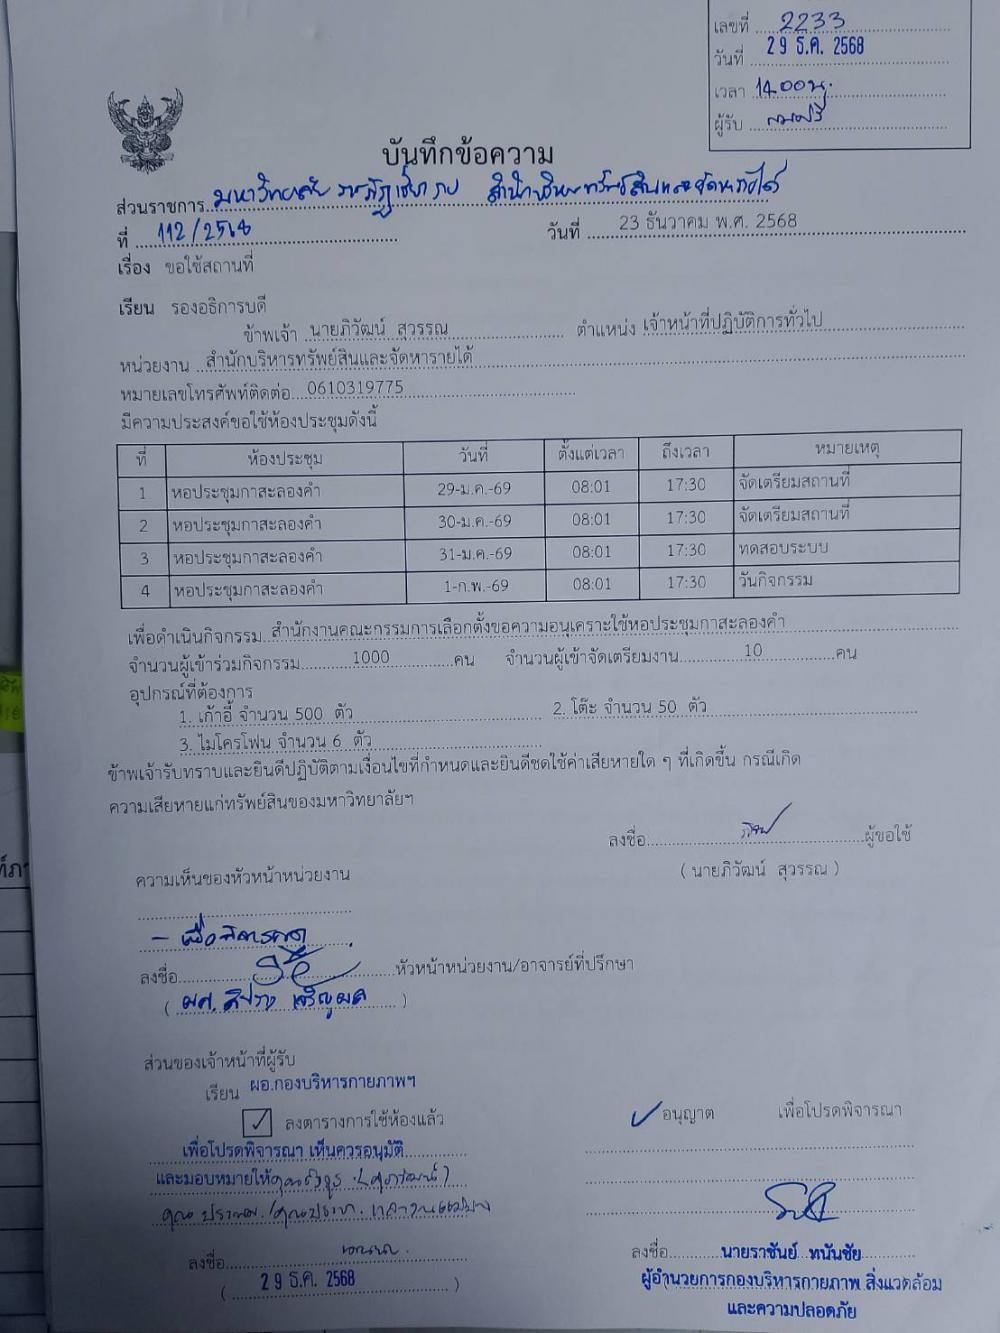 เลขที่ 2233
วันที่ 29 ธ.ค. 2568
เวลา 14.00น.
ผู้รับ
บันทึกข้อความ
ส่วนราชการ มหาวิทยาลัยราชภัฏเชียงราย สำนักบริหารทรัพย์สินและจัดหารายได้
ที่ 112/2568 วันที่ 23 ธันวาคม พ.ศ. 2568
เรื่อง ขอใช้สถานที่
เรียน รองอธิการบดี
ข้าพเจ้า นายภิวัฒน์ สุวรรณ ตำแหน่ง เจ้าหน้าที่ปฏิบัติการทั่วไป
หน่วยงาน สำนักบริหารทรัพย์สินและจัดหารายได้
หมายเลขโทรศัพท์ติดต่อ 0610319775
มีความประสงค์ขอใช้ห้องประชุมดังนี้
ที่ ห้องประชุม วันที่ ตั้งแต่เวลา ถึงเวลา หมายเหตุ
1 หอประชุมกาสะลองคำ 29-ม.ค.-69 08:01 17:30 จัดเตรียมสถานที่
2 หอประชุมกาสะลองคำ 30-ม.ค.-69 08:01 17:30 จัดเตรียมสถานที่
3 หอประชุมกาสะลองคำ 31-ม.ค.-69 08:01 17:30 ทดสอบระบบ
4 หอประชุมกาสะลองคำ 1-ก.พ.-69 08:01 17:30 วันกิจกรรม
เพื่อดำเนินกิจกรรม สำนักงานคณะกรรมการเลือกตั้งขอความอนุเคราะใช้หอประชุมกาสะลองคำ
จำนวนผู้เข้าร่วมกิจกรรม 1000 คน จำนวนผู้เข้าจัดเตรียมงาน 10 คน
อุปกรณ์ที่ต้องการ
1. เก้าอี้ จำนวน 500 ตัว 2. โต๊ะ จำนวน 50 ตัว
3. ไมโครโฟน จำนวน 6 ตัว
ข้าพเจ้ารับทราบและยินดีปฏิบัติตามเงื่อนไขที่กำหนดและยินดีชดใช้ค่าเสียหายใด ๆ ที่เกิดขึ้น กรณีเกิด
ความเสียหายแก่ทรัพย์สินของมหาวิทยาลัยฯ
ลงชื่อ ผู้ขอใช้
( นายภิวัฒน์ สุวรรณ )
ความเห็นของหัวหน้าหน่วยงาน
- เพื่อพิจารณา
ลงชื่อ หัวหน้าหน่วยงาน/อาจารย์ที่ปรึกษา
( ผศ. )
ส่วนของเจ้าหน้าที่ผู้รับ
เรียน ผอ.กองบริหารกายภาพฯ
ลงตารางการใช้ห้องแล้ว
อนุญาต เพื่อโปรดพิจารณา
เพื่อโปรดพิจารณา เห็นควรอนุมัติ
และมอบหมายให้
ลงชื่อ
( 29 ธ.ค. 2568 )
ลงชื่อ นายราชันย์ ทนันชัย
ผู้อำนวยการกองบริหารกายภาพ สิ่งแวดล้อม
และความปลอดภัย